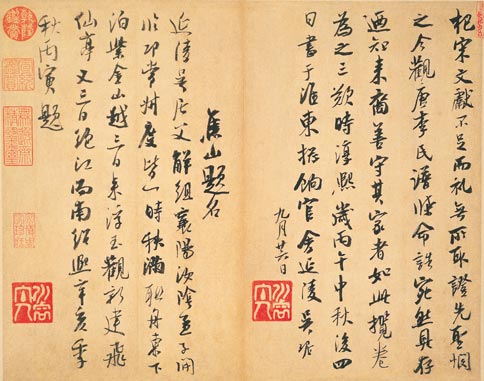 杞宋文獻不足而禮無所取證先聖惘
之今觀唐李氏譜牒命誥宛然具存
迺知來裔善守其家者如此攬卷
為之三歎時淳熙歲丙午中秋後四
日書于淮東揔餉官舍延陵吳琚
九月廿六日
焦山題名
延陵吳居父解組襄陽汝陰孟子開
印常州度皆一時秋滿聯舟東下
泊紫金山越三日來浮玉觀新建飛
仙亭又三日絕江而南紹熙辛亥季
秋丙寅題